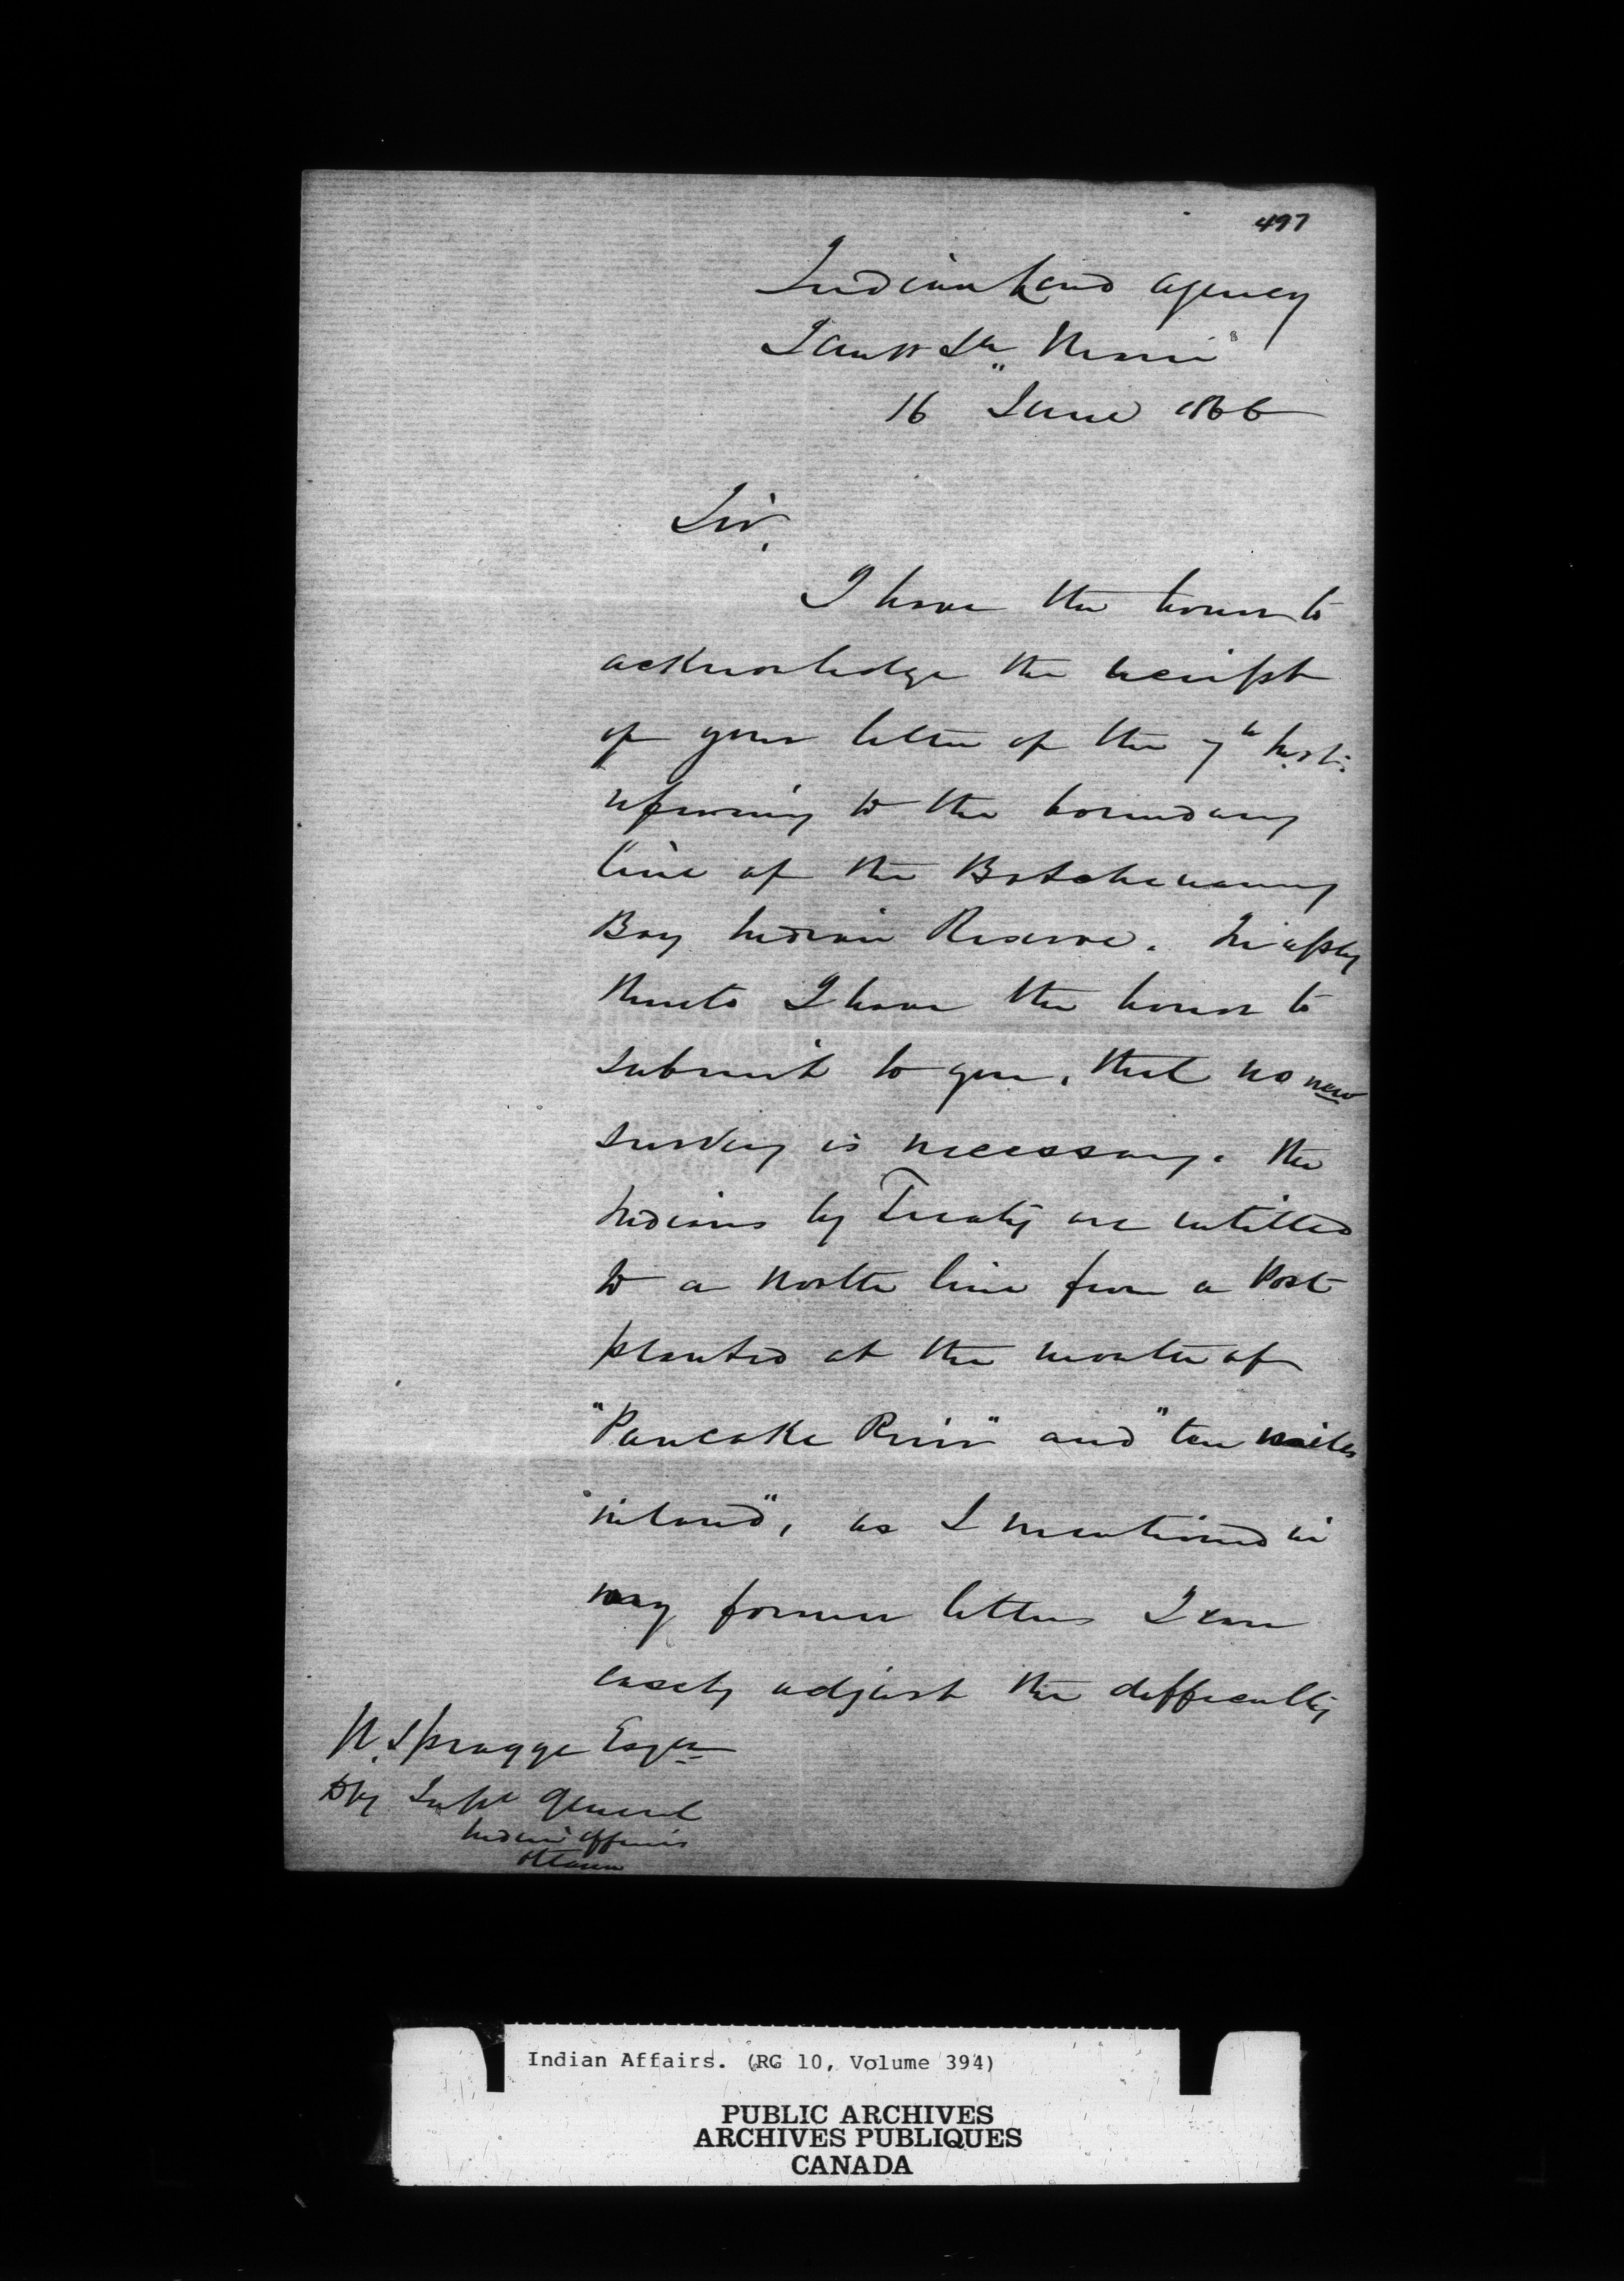 497
Indian Land Agency
Sault Ste Marie
16 June 1866
Sir,
I have the honor to
acknowledge the receipt
of your letter of the 7th Inst:
referring to the boundary
line of the Batchewanny
Bay Indian Reserve. In reply
thereto I have the honor to
submit to you, that no new
survey is necessary. The
Indians by Treaty are entitled
to a North line from a Post
planted at the mouth of
"Pancake River" and "ten miles
"inland", as I mentioned in
my former letters I can
easely adjust the difficulty
W. Spragge Esqr
Dpy Supt General
Indian Affairs
Ottawa
Indian Affairs. (RG 10, Volume 394)
PUBLIC ARCHIVES
ARCHIVES PUBLIQUES
CANADA